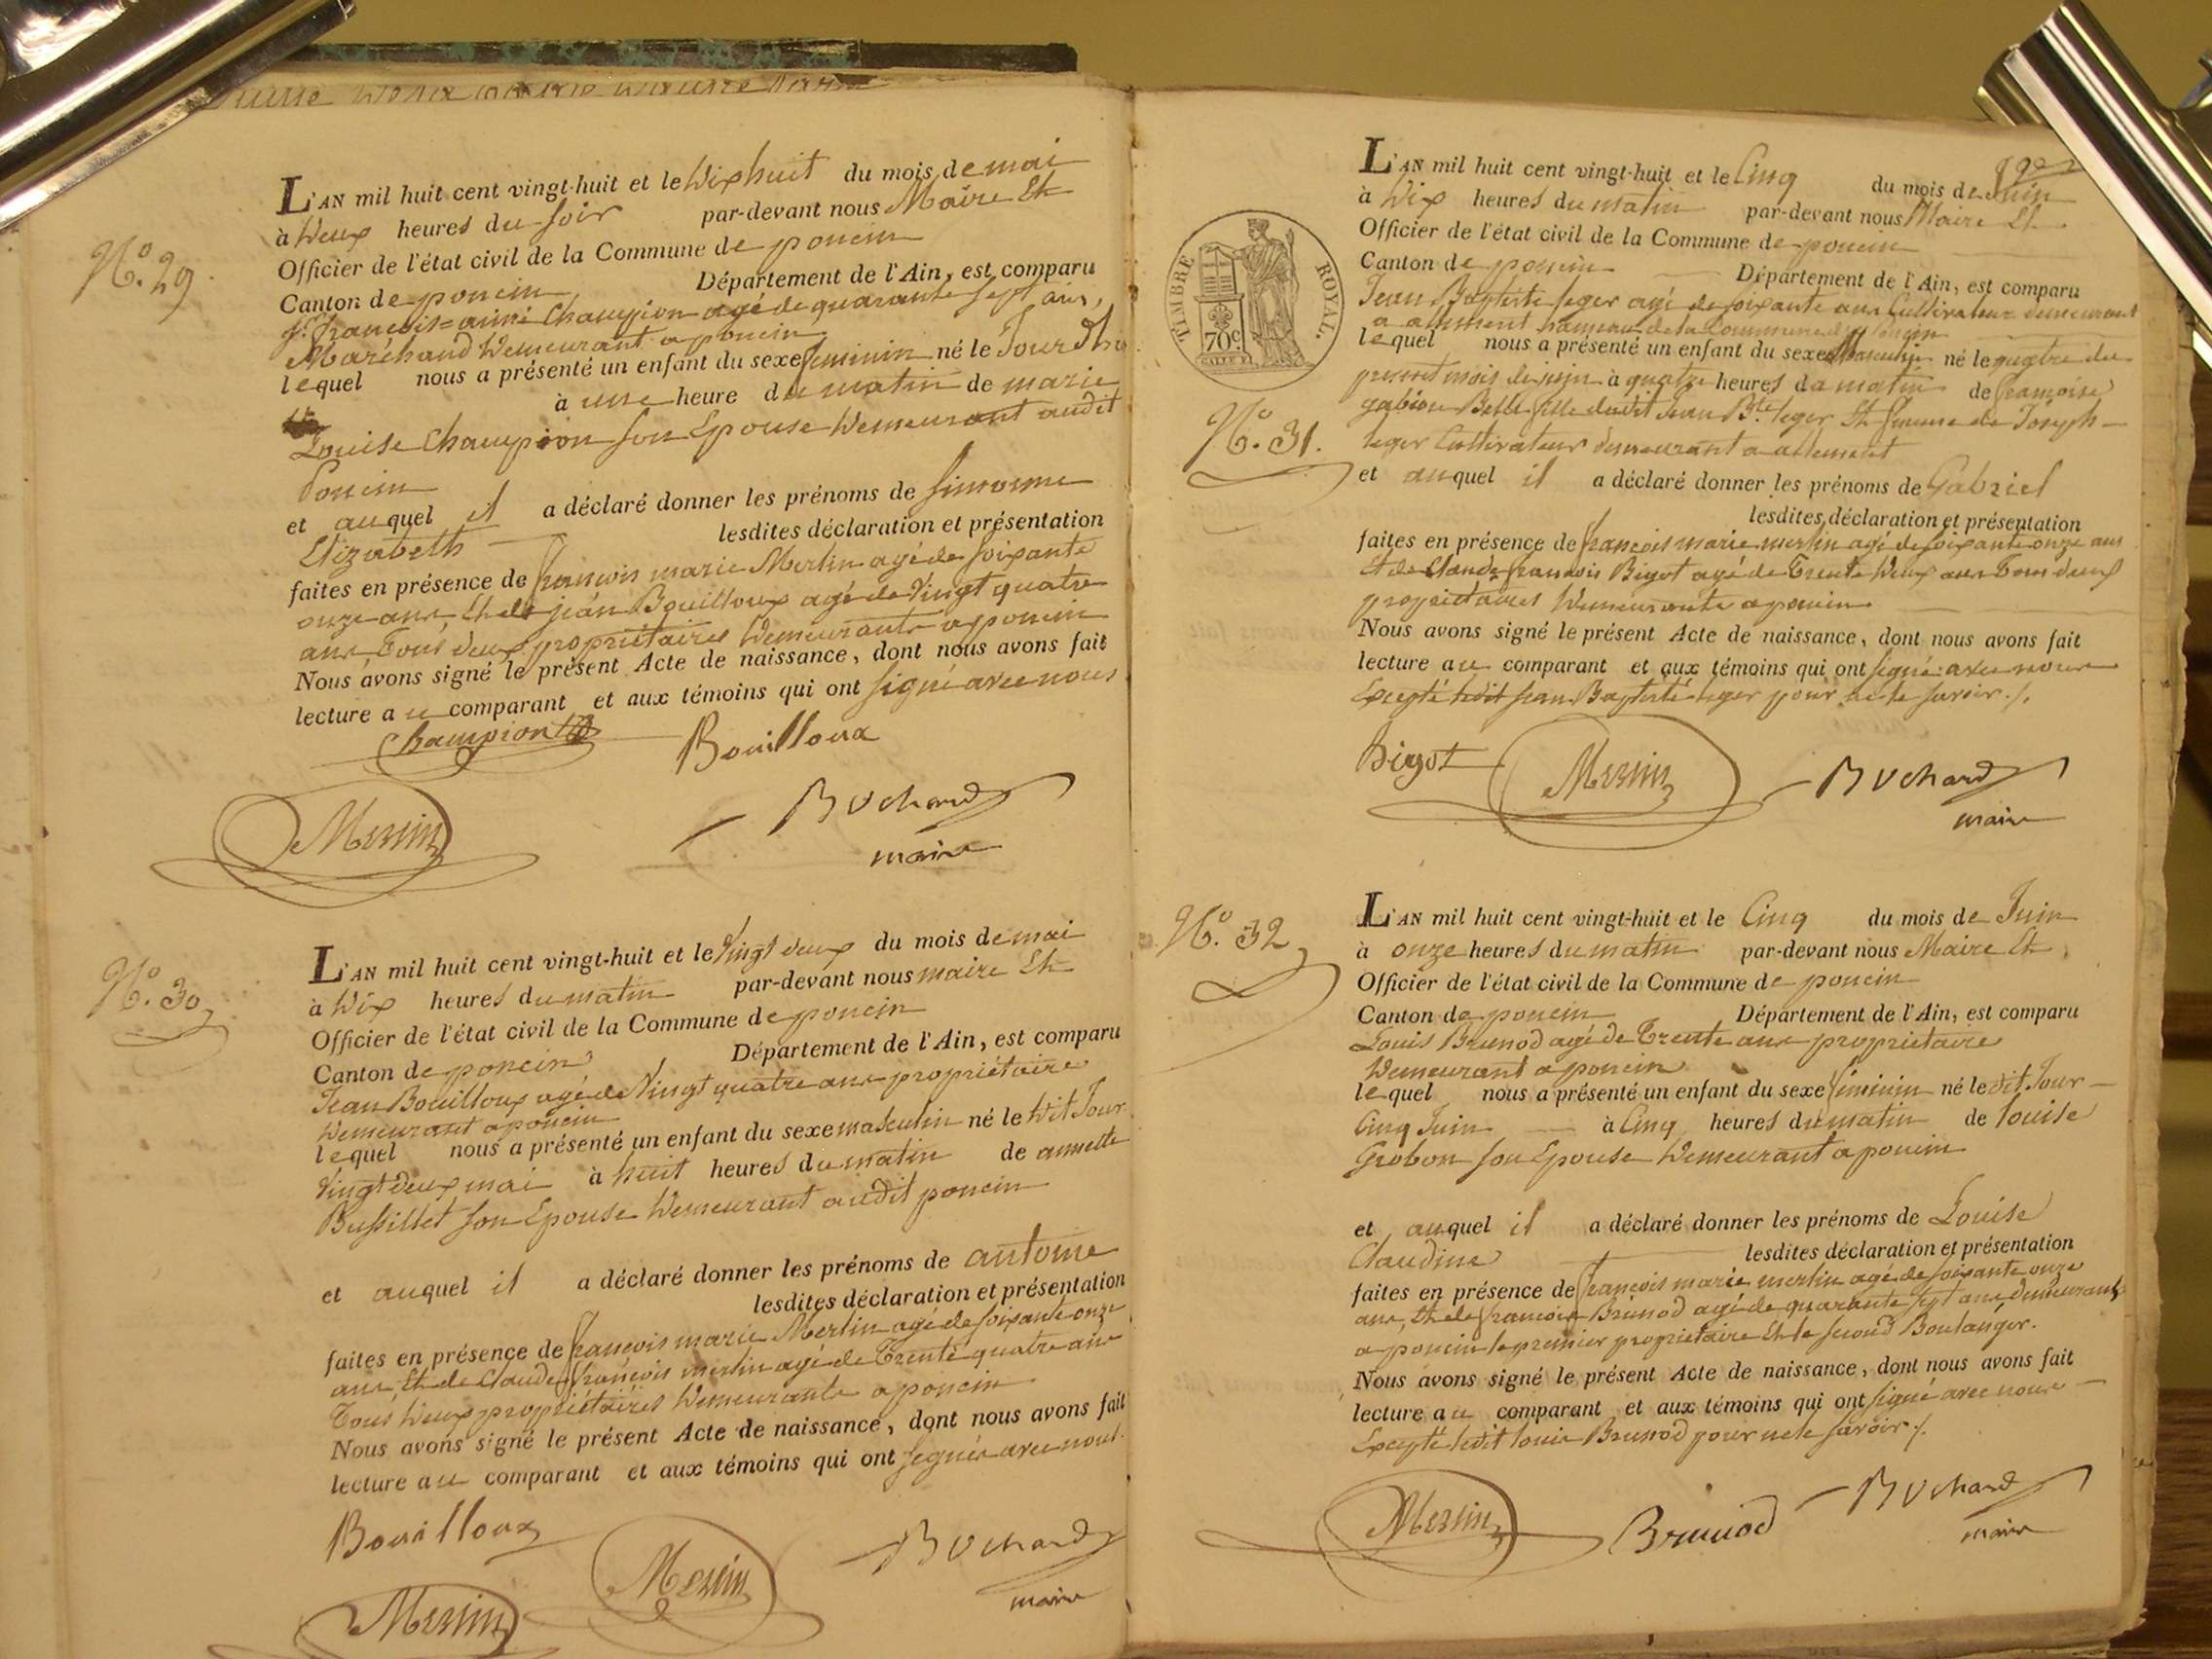 N.° 29
L'AN mil huit cent vingt-huit et le dix huit du mois de mai
à deux heures du soir par-devant nous Maire Et
Officier de l'état civil de la Commune de poncin
Canton de poncin Département de l'Ain, est comparu
Sr. françois=aimé Champion agé de quarante sept ans,
Maréchand demeurant a poncin
lequel nous a présenté un enfant du sexe feminin né le Jour d'hui
à une heure du matin de marie
Louise Champion son Epouse demeurant audit
Poncin
et auquel il a déclaré donner les prénoms de Simonne
Elizabeth lesdites déclaration et présentation
faites en présence de françois marie Merlin agé de soixante
onze ans, Et de jean Bouilloux agé de vingt quatre
ans Tous deux propriétaires demeurants a poncin
Nous avons signé le présent Acte de naissance, dont nous avons fait
lecture au comparant et aux témoins qui ont signé avec nous
Champion Bouilloux
Merlin Buchard
maire
N.° 30
L'AN mil huit cent vingt-huit et le vingt deux du mois de mai
à dix heures du matin par-devant nous maire Et
Officier de l'état civil de la Commune de poncin
Canton de poncin Département de l'Ain, est comparu
Jean Bouilloux agé de vingt quatre ans propriétaire
demeurant a poncin
lequel nous a présenté un enfant du sexe masculin né le dit Jour
vingt deux mai à huit heures du matin de annette
Bussillet son Epouse demeurant audit poncin
et auquel il a déclaré donner les prénoms de antoine
lesdites déclaration et présentation
faites en présence de françois marie Merlin agé de soixante onze
ans, Et de Claude françois merlin agé de Trente quatre ans
Tous deux propriétaires demeurants a poncin
Nous avons signé le présent Acte de naissance, dont nous avons fait
lecture au comparant et aux témoins qui ont signés avec nous.
Bouilloux Merlin Buchard
Merlin maire
L'AN mil huit cent vingt-huit et le Cinq du mois de Juin
à dix heures du matin par-devant nous Maire Et
Officier de l'état civil de la Commune de poncin
Canton de poncin Département de l'Ain, est comparu
TIMBRE ROYAL.
70c.
N.° 31.
Jean Baptiste leger agé de soixante ans Cultivateur demeurant
a hameau de la Commune de Poncin
lequel nous a présenté un enfant du sexe Masculin né le quatre du
present mois de juin à quatre heures du matin de françoise
gabion Belle fille dudit Jean Bte. leger Et femme de Joseph
leger Cultivateur demeurant a
et auquel il a déclaré donner les prénoms de Gabriel
lesdites déclaration et présentation
faites en présence de françois marie merlin agé de soixante onze ans
Et de Claude françois Bigot agé de Trente deux ans Tous deux
propriétaires demeurants a poncin
Nous avons signé le présent Acte de naissance, dont nous avons fait
lecture au comparant et aux témoins qui ont signé avec nous
Excepté ledit Jean Baptiste leger pour ne le savoir ./.
Bigot Merlin Buchard
maire
N.° 32
L'AN mil huit cent vingt-huit et le Cinq du mois de Juin
à onze heures du matin par-devant nous Maire Et
Officier de l'état civil de la Commune de poncin
Canton de poncin Département de l'Ain, est comparu
Louis Brunod agé de Trente ans propriétaire
demeurant a poncin
lequel nous a présenté un enfant du sexe feminin né le dit Jour
Cinq Juin à Cinq heures du matin de louise
Grobon son Epouse demeurant a poncin
et auquel il a déclaré donner les prénoms de Louise
Claudine lesdites déclaration et présentation
faites en présence de françois marie merlin agé de soixante onze
ans, Et de françois Brunod agé de quarante sept ans, demeurants
a poncin le premier propriétaire Et le second Boulanger.
Nous avons signé le présent Acte de naissance, dont nous avons fait
lecture au comparant et aux témoins qui ont signé avec nous
Excepté ledit louis Brunod pour ne le savoir ./.
Merlin Brunod Buchard
maire